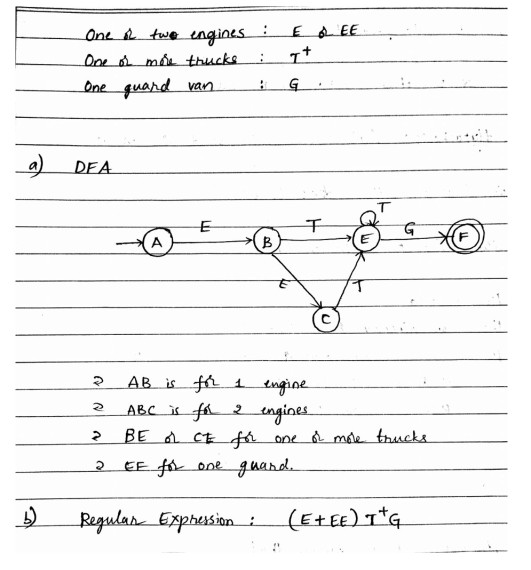 One or two engines : E or EE
One or more trucks : T+
One guard van : G
a) DFA
A E B T E T G F
E C T
AB is for 1 engine
ABC is for 2 engines
BE or CE for one or more trucks
EF for one guard.
b) Regular Expression : (E+EE) T+G